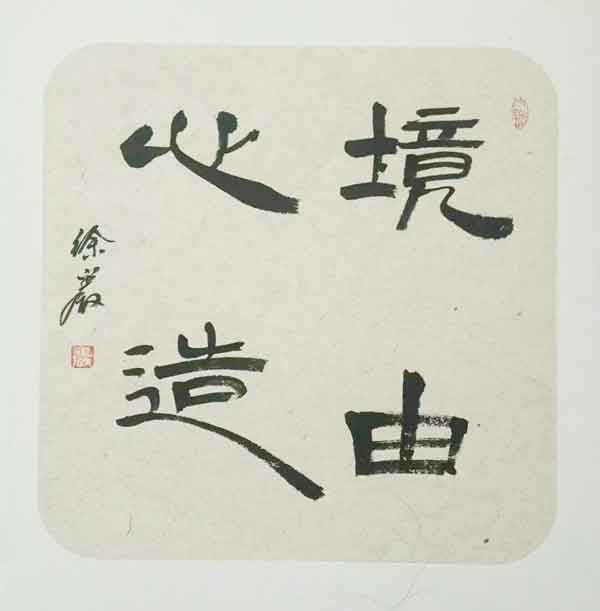 境由
心造
徐岩